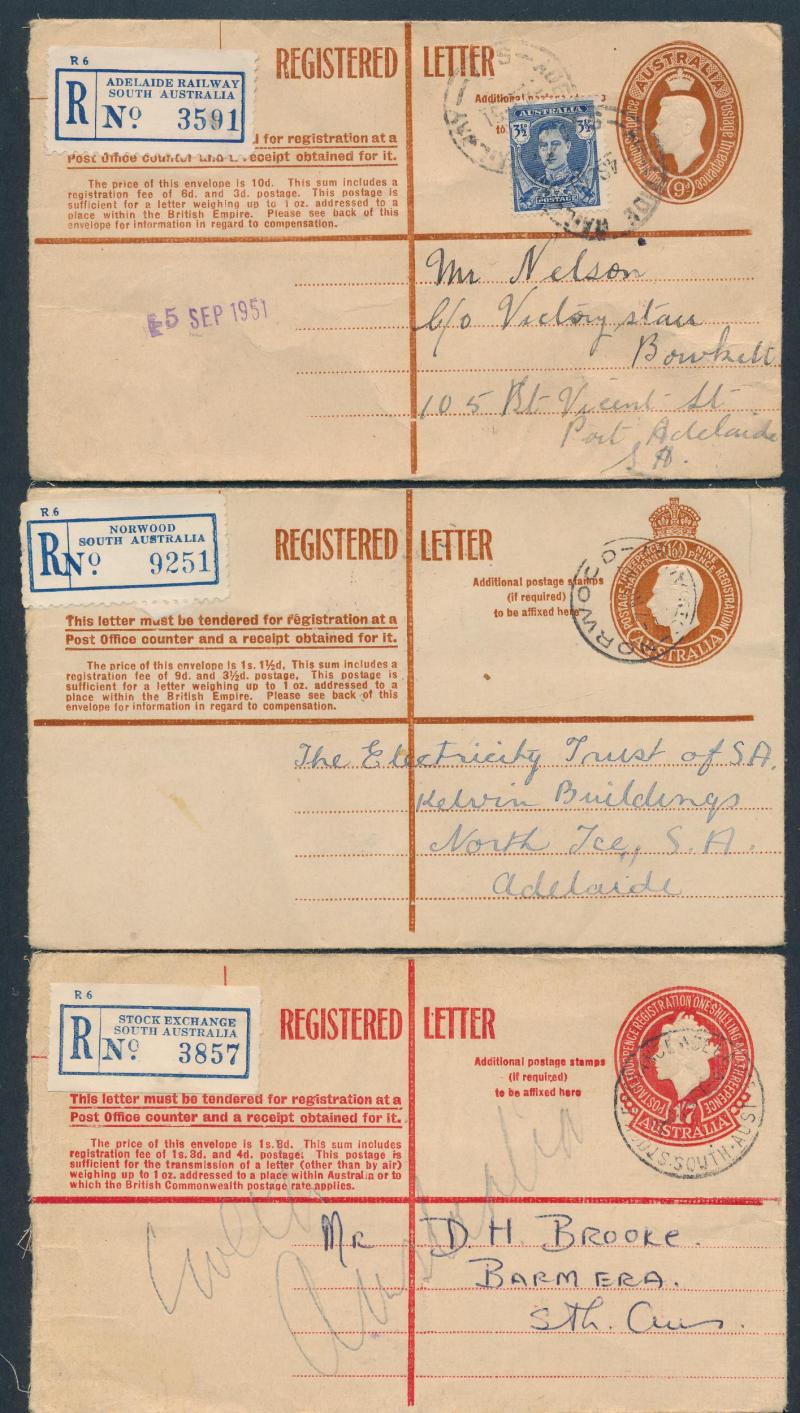 R 6
R
ADELAIDE RAILWAY
SOUTH AUSTRALIA
No 3591
REGISTERED LETTER
Additional postage stamps
to
AUSTRALIA
9D
3½D
AUSTRALIA
3½D
POSTAGE
d for registration at a
Post Office counter and a receipt obtained for it.
The price of this envelope is 10d. This sum includes a
registration fee of 6d. and 3d. postage. This postage is
sufficient for a letter weighing up to 1 oz. addressed to a
place within the British Empire. Please see back of this
envelope for information in regard to compensation.
5 SEP 1951
Mr Nelson
C/o Victory stau
Bowkett
105 Pt Vicent St
Port Adelaide
S A.
R 6
R
NORWOOD
SOUTH AUSTRALIA
No 9251
REGISTERED LETTER
Additional postage stamps
(if required)
to be affixed here
NORWOOD
AUSTRALIA
This letter must be tendered for registration at a
Post Office counter and a receipt obtained for it.
The price of this envelope is 1s. 1½d. This sum includes a
registration fee of 9d. and 3½d. postage. This postage is
sufficient for a letter weighing up to 1 oz. addressed to a
place within the British Empire. Please see back of this
envelope for information in regard to compensation.
The Electricity Trust of S.A.
Kelvin Buildings
North Tce, S.A.
Adelaide
R 6
R
STOCK EXCHANGE
SOUTH AUSTRALIA
No 3857
REGISTERED LETTER
Additional postage stamps
(if required)
to be affixed here
POSTAGE FOURPENCE REGISTRATION ONE SHILLING AND THREEPENCE
1/7
AUSTRALIA
SOUTH AUST
This letter must be tendered for registration at a
Post Office counter and a receipt obtained for it.
The price of this envelope is 1s. 8d. This sum includes
registration fee of 1s. 3d. and 4d. postage. This postage is
sufficient for the transmission of a letter (other than by air)
weighing up to 1 oz. addressed to a place within Australia or to
which the British Commonwealth postage rate applies.
Australia
Mr D. H. BROOKE.
BARMERA.
Sth. Aus.